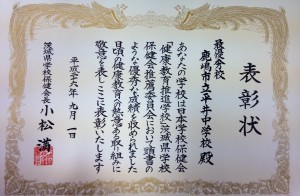 表彰状
最優秀校
鹿嶋市立平井中学校 殿
あなたの学校は日本学校保健会
「健康教育推進学校」茨城県学校
保健会推薦委員会において頭書の
ような優秀な成績を収められました
日頃の健康教育への熱意ある取り組みに
敬意を表しここに表彰いたします
平成二十六年九月一日
茨城県学校保健会長 小松 満